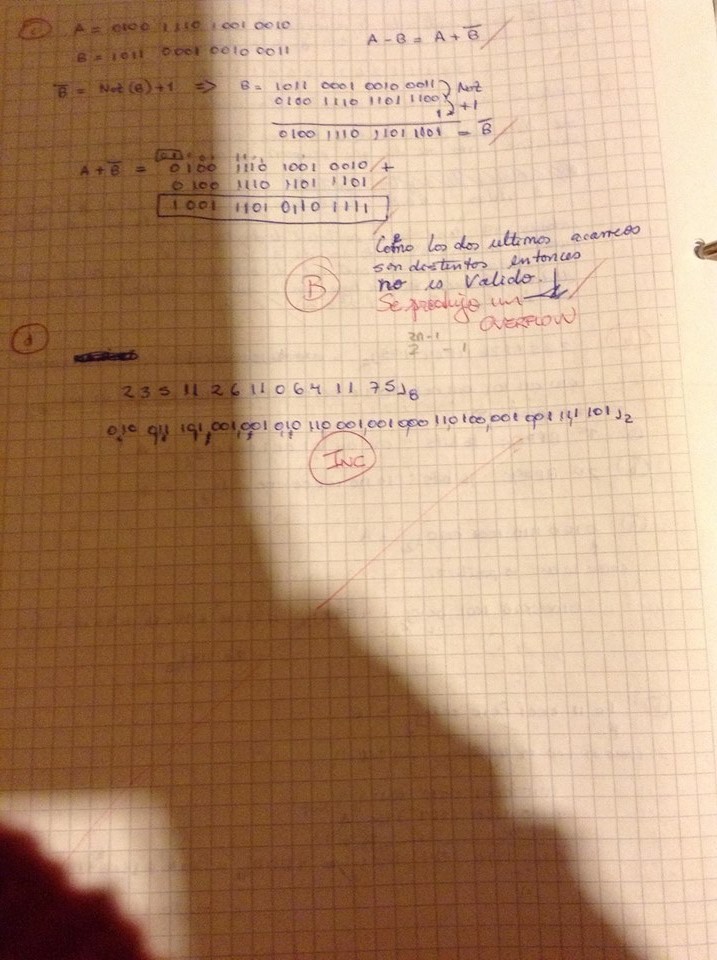 c) A = 0100 1110 1001 0010
A - B = A + B̅
B = 1011 0001 0010 0011
B̅ = Not(B)+1 => B = 1011 0001 0010 0011 Not
0100 1110 1101 1100 +1
1
0100 1110 1101 1101 = B̅
A + B̅ = 0100 1110 1001 0010 +
0100 1110 1101 1101
1001 1101 0110 1111
Como los dos ultimos acarreos
son distintos entonces
no is Valido.
B
Se produjo un
OVERFLOW
d)
2 3 5 11 2 6 11 0 6 4 11 75)8
010 011 101,001,001 010 110 001,001 000 110 100,001 001 111 101)2
INC